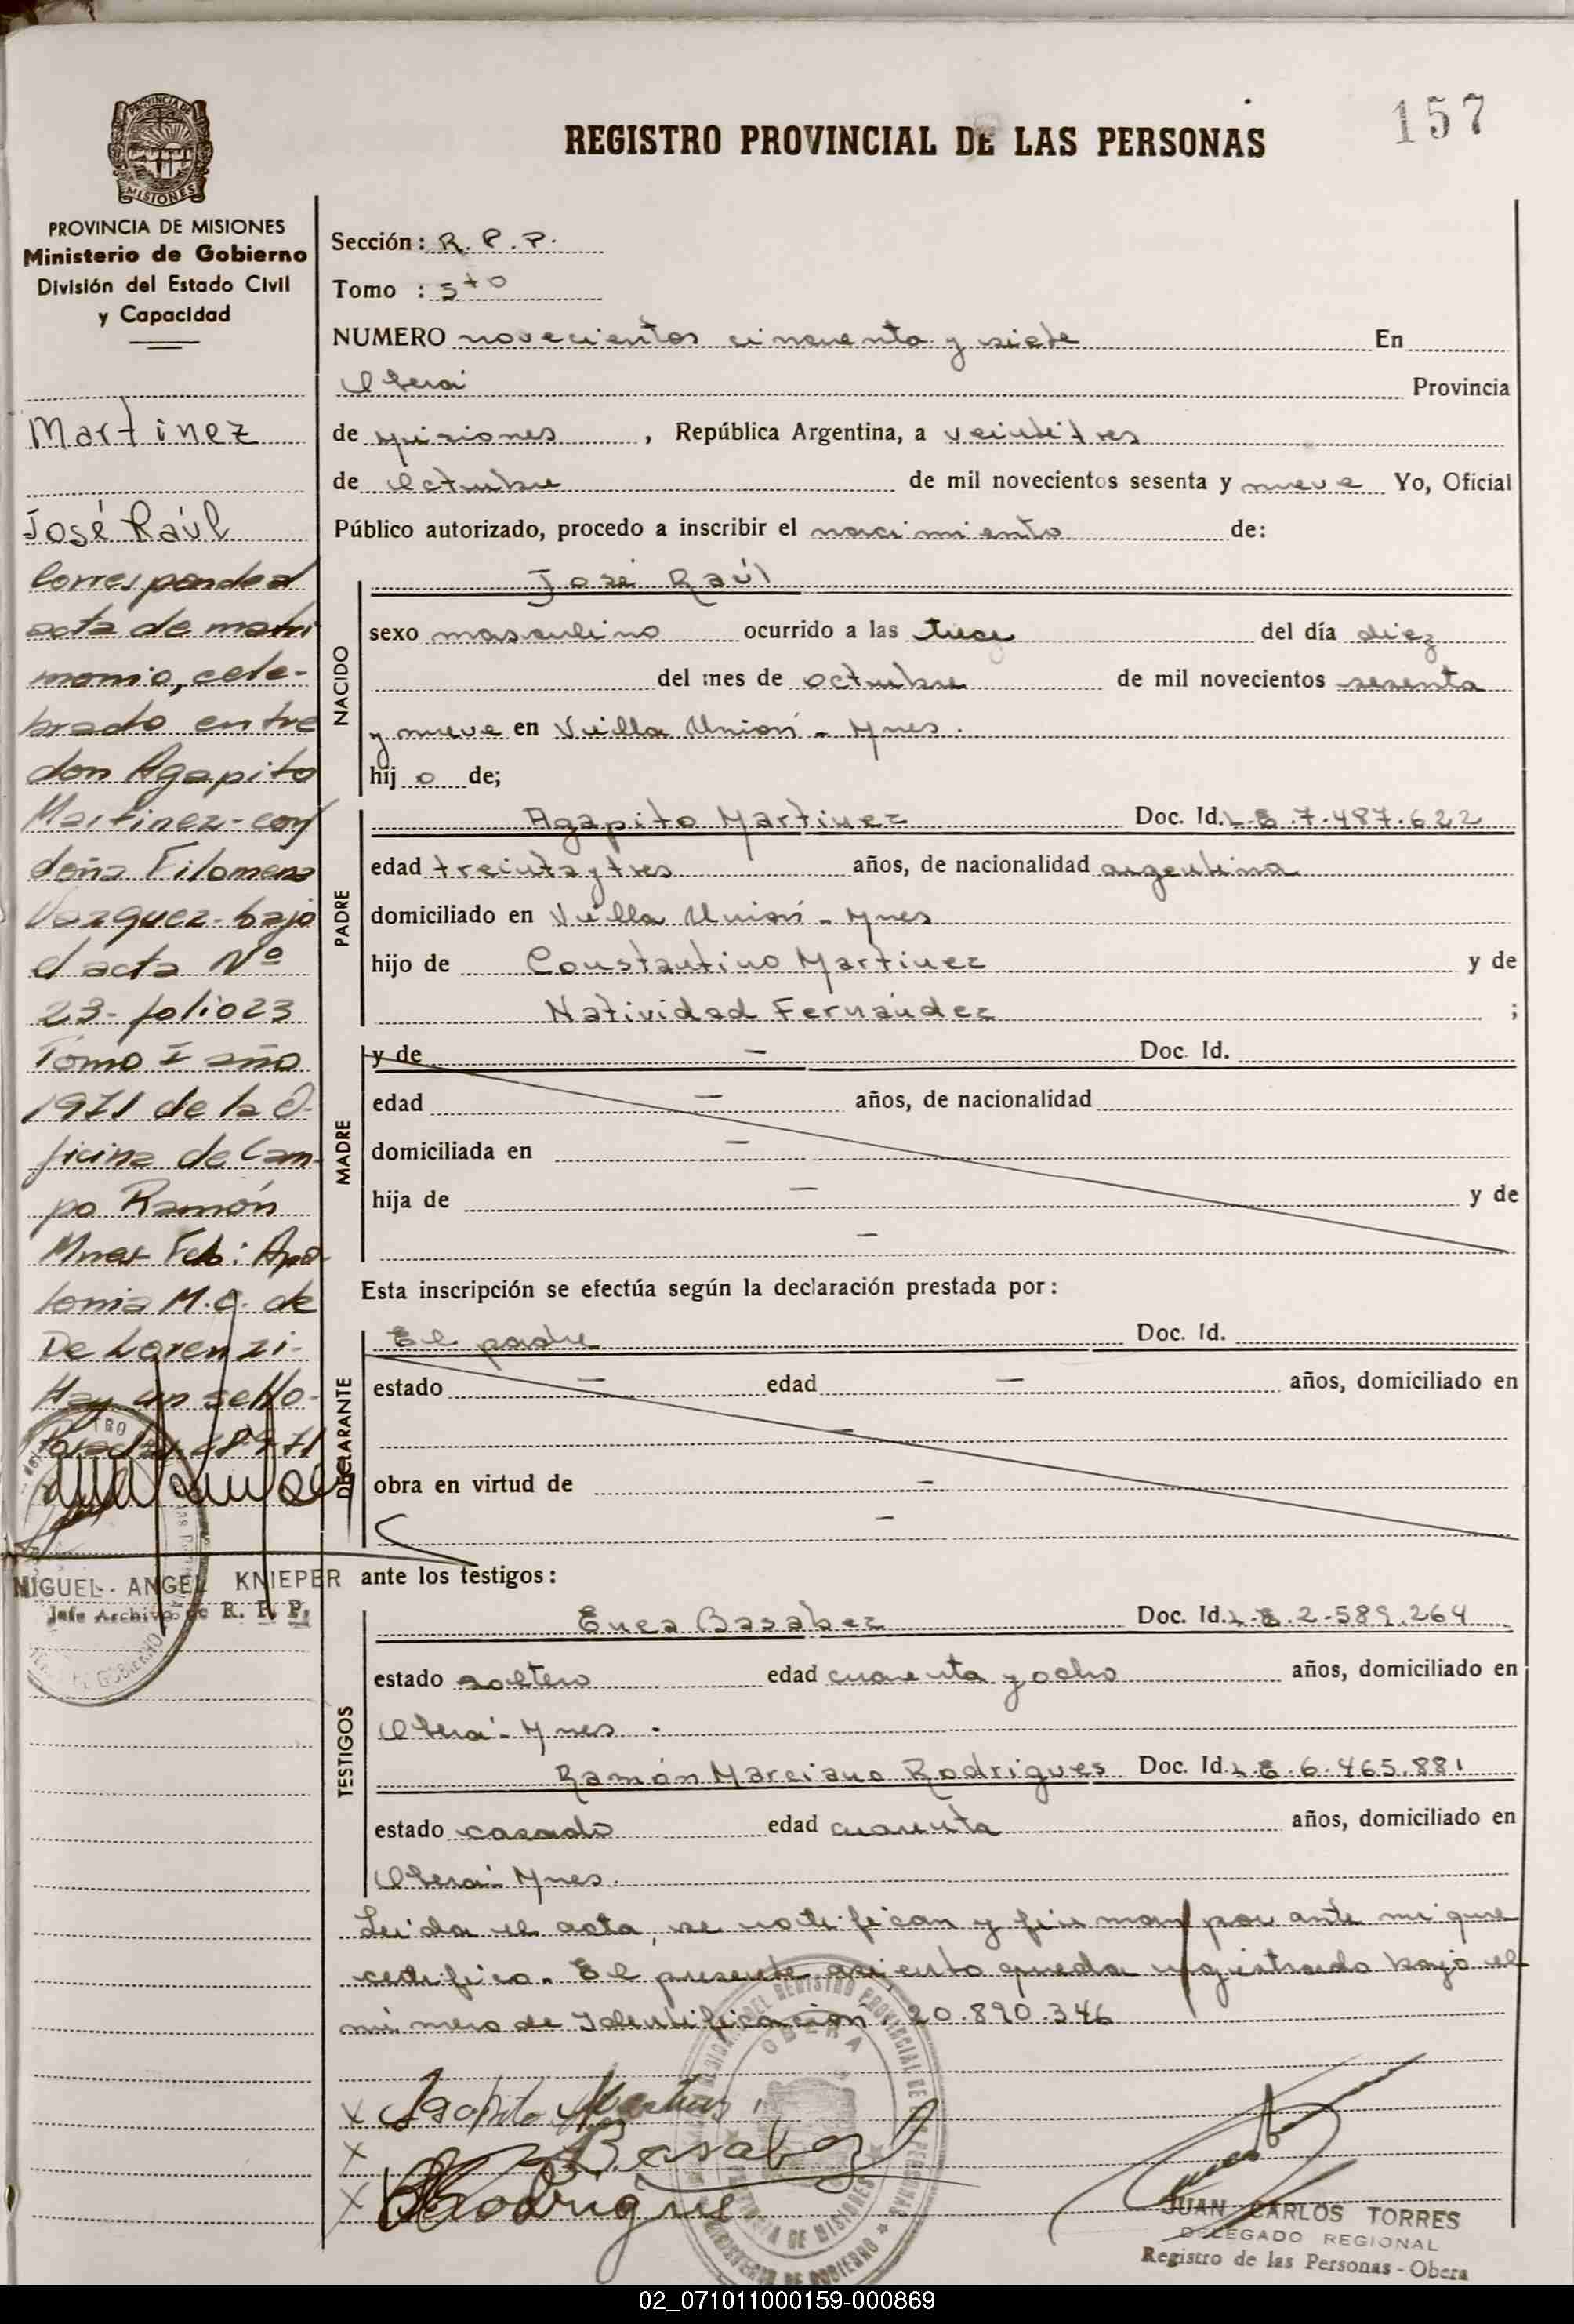 157
REGISTRO PROVINCIAL DE LAS PERSONAS
PROVINCIA DE MISIONES
Ministerio de Gobierno
División del Estado Civil
y Capacidad
Martinez
José Raúl
Corresponde al
acta de matri
monio, cele-
brado entre
don Agapito
Martinez-con
doña Filomena
Vazquez-bajo
el acta Nº
23-folio 23
Tomo I año
1971 de la O-
ficina de Cam-
po Ramón
Mnes Fdo: Apo-
lonia M.C. de
De Lorenzi-
Hay un sello-
MIGUEL ANGEL KNIEPER
Jefe Archivo de R. P. P.
Sección: R. P. P.
Tomo : 5to
NUMERO novecientos cincuenta y siete En
Oberá Provincia
de Misiones, República Argentina, a veintitres
de Octubre de mil novecientos sesenta y nueve Yo, Oficial
Público autorizado, procedo a inscribir el nacimiento de:
NACIDO
José Raúl
sexo masculino ocurrido a las trece del día diez
del mes de octubre de mil novecientos sesenta
y nueve en Villa Unión - Mnes.
hij o de;
PADRE
Agapito Martinez Doc. Id. L.E.7.487.622
edad treinta y tres años, de nacionalidad argentina
domiciliado en Villa Unión - Mnes
hijo de Constantino Martinez y de
Natividad Fernández ;
MADRE
y de — Doc. Id.
edad — años, de nacionalidad
domiciliada en —
hija de — y de
—
Esta inscripción se efectúa según la declaración prestada por:
DECLARANTE
El padre Doc. Id.
estado — edad — años, domiciliado en
—
obra en virtud de —
—
ante los testigos:
TESTIGOS
Enea Basabez Doc. Id. L.E.2.589.264
estado soltero edad cuarenta y ocho años, domiciliado en
Oberá - Mnes.
Ramón Marciano Rodrigues Doc. Id. L.E.6.465.881
estado casado edad cuarenta años, domiciliado en
Oberá - Mnes.
Leida el acta, se notifican y firman por ante mi que
certifico. El presente asiento queda registrado bajo el
número de Identificación: 20.890.346
x Agapito Martinez
x Basabez
x Rodrigue
OBERA
JUAN CARLOS TORRES
DELEGADO REGIONAL
Registro de las Personas - Obera
02_071011000159-000869